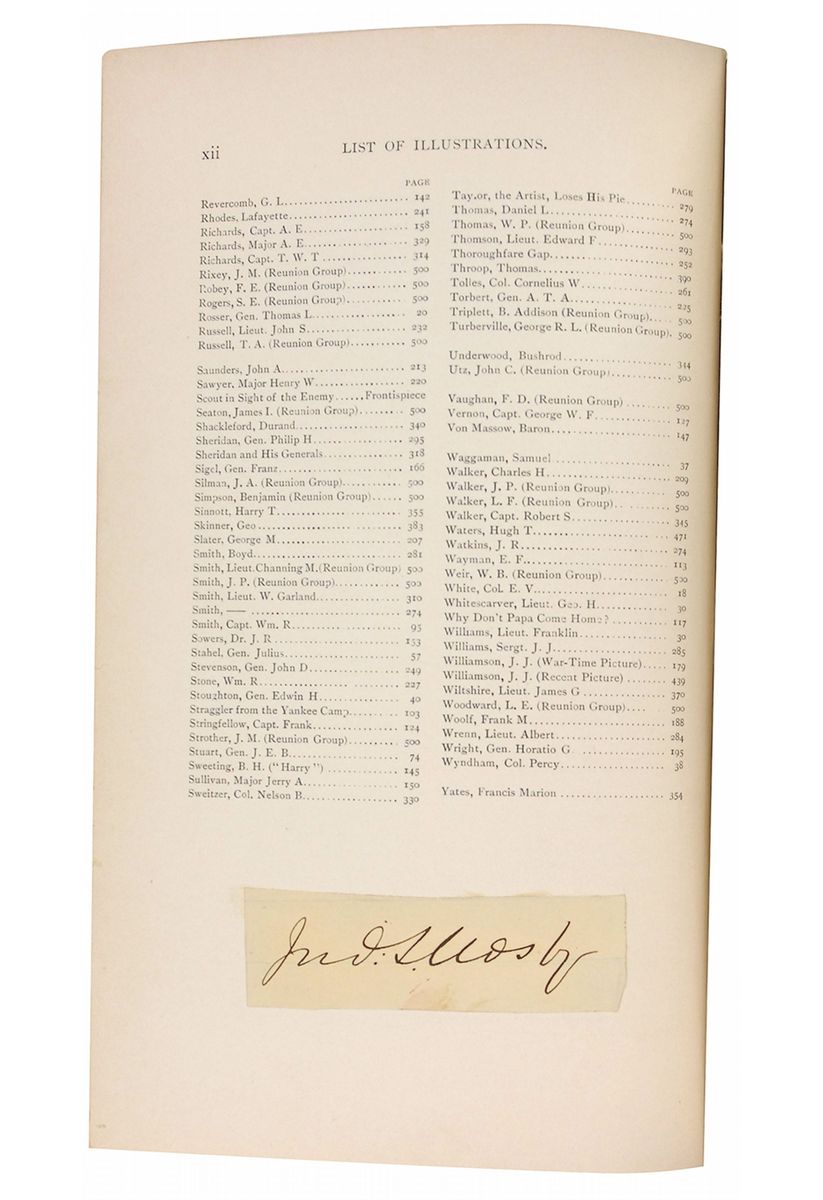 xii
LIST OF ILLUSTRATIONS.
PAGE
Revercomb, G. L. 142
Rhodes, Lafayette 241
Richards, Capt. A. E. 158
Richards, Major A. E. 329
Richards, Capt. T. W. T 314
Rixey, J. M. (Reunion Group) 500
Robey, F. E. (Reunion Group) 500
Rogers, S. E. (Reunion Group) 500
Rosser, Gen. Thomas L. 20
Russell, Lieut. John S. 232
Russell, T. A. (Reunion Group) 500
Saunders, John A. 213
Sawyer, Major Henry W. 220
Scout in Sight of the Enemy ......Frontispiece
Seaton, James I. (Reunion Group) 500
Shackleford, Durand 340
Sheridan, Gen. Philip H. 295
Sheridan and His Generals 318
Sigel, Gen. Franz 166
Silman, J. A. (Reunion Group) 500
Simpson, Benjamin (Reunion Group) 500
Sinnott, Harry T. 355
Skinner, Geo 383
Slater, George M. 207
Smith, Boyd 281
Smith, Lieut. Channing M. (Reunion Group) 500
Smith, J. P. (Reunion Group) 500
Smith, Lieut. W. Garland 310
Smith, —— 274
Smith, Capt. Wm. R. 95
Sowers, Dr. J. R 153
Stahel, Gen. Julius 57
Stevenson, Gen. John D. 249
Stone, Wm. R. 227
Stoughton, Gen. Edwin H. 40
Straggler from the Yankee Camp 103
Stringfellow, Capt. Frank 124
Strother, J. M. (Reunion Group) 500
Stuart, Gen. J. E. B. 74
Sweeting, B. H. ("Harry") 145
Sullivan, Major Jerry A. 150
Sweitzer, Col. Nelson B. 330
PAGE
Taylor, the Artist, Loses His Pie 279
Thomas, Daniel L. 274
Thomas, W. P. (Reunion Group) 500
Thomson, Lieut. Edward F. 293
Thoroughfare Gap 252
Throop, Thomas 390
Tolles, Col. Cornelius W. 261
Torbert, Gen. A. T. A. 225
Triplett, B. Addison (Reunion Group) 500
Turberville, George R. L. (Reunion Group). 500
Underwood, Bushrod 344
Utz, John C. (Reunion Group) 500
Vaughan, F. D. (Reunion Group) 500
Vernon, Capt. George W. F. 127
Von Massow, Baron 147
Waggaman, Samuel 37
Walker, Charles H. 209
Walker, J. P. (Reunion Group) 500
Walker, L. F. (Reunion Group) 500
Walker, Capt. Robert S. 345
Waters, Hugh T. 471
Watkins, J. R. 274
Wayman, E. F. 113
Weir, W. B. (Reunion Group) 500
White, Col. E. V. 18
Whitescarver, Lieut. Geo. H. 30
Why Don't Papa Come Home? 117
Williams, Lieut. Franklin 30
Williams, Sergt. J. J. 285
Williamson, J. J. (War-Time Picture) 179
Williamson, J. J. (Recent Picture) 439
Wiltshire, Lieut. James G 370
Woodward, L. E. (Reunion Group) 500
Woolf, Frank M. 188
Wrenn, Lieut. Albert 284
Wright, Gen. Horatio G 195
Wyndham, Col. Percy 38
Yates, Francis Marion 354
Jno. S. Mosby